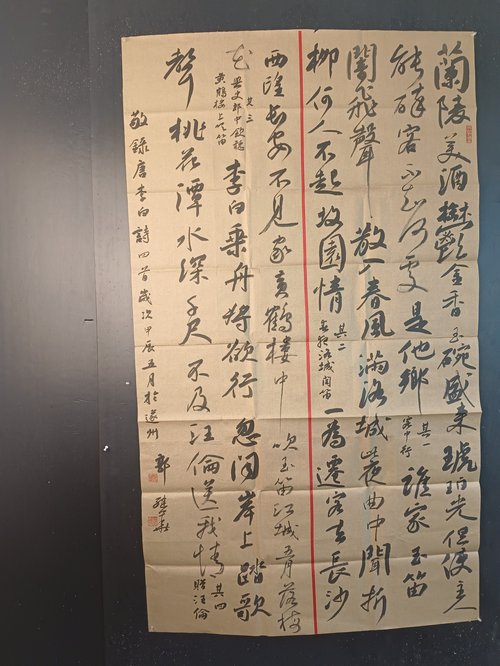 蘭陵美酒鬱金香玉碗盛来琥珀光但使主人
能醉客不知何處是他鄉 其一 客中行 誰家玉笛
闇飛聲散入春風滿洛城此夜曲中聞折
柳何人不起故園情 其二 春夜洛城聞笛 一為遷客去長沙
西望長安不見家黃鶴樓中吹玉笛江城五月落梅
花 其三 與史郎中欽聽黃鶴樓上吹笛 李白乘舟將欲行忽闻岸上踏歌
聲桃花潭水深千尺不及汪倫送我情 其四 贈汪倫
敬錄唐李白詩四首歲次甲辰五月於遂州 郭